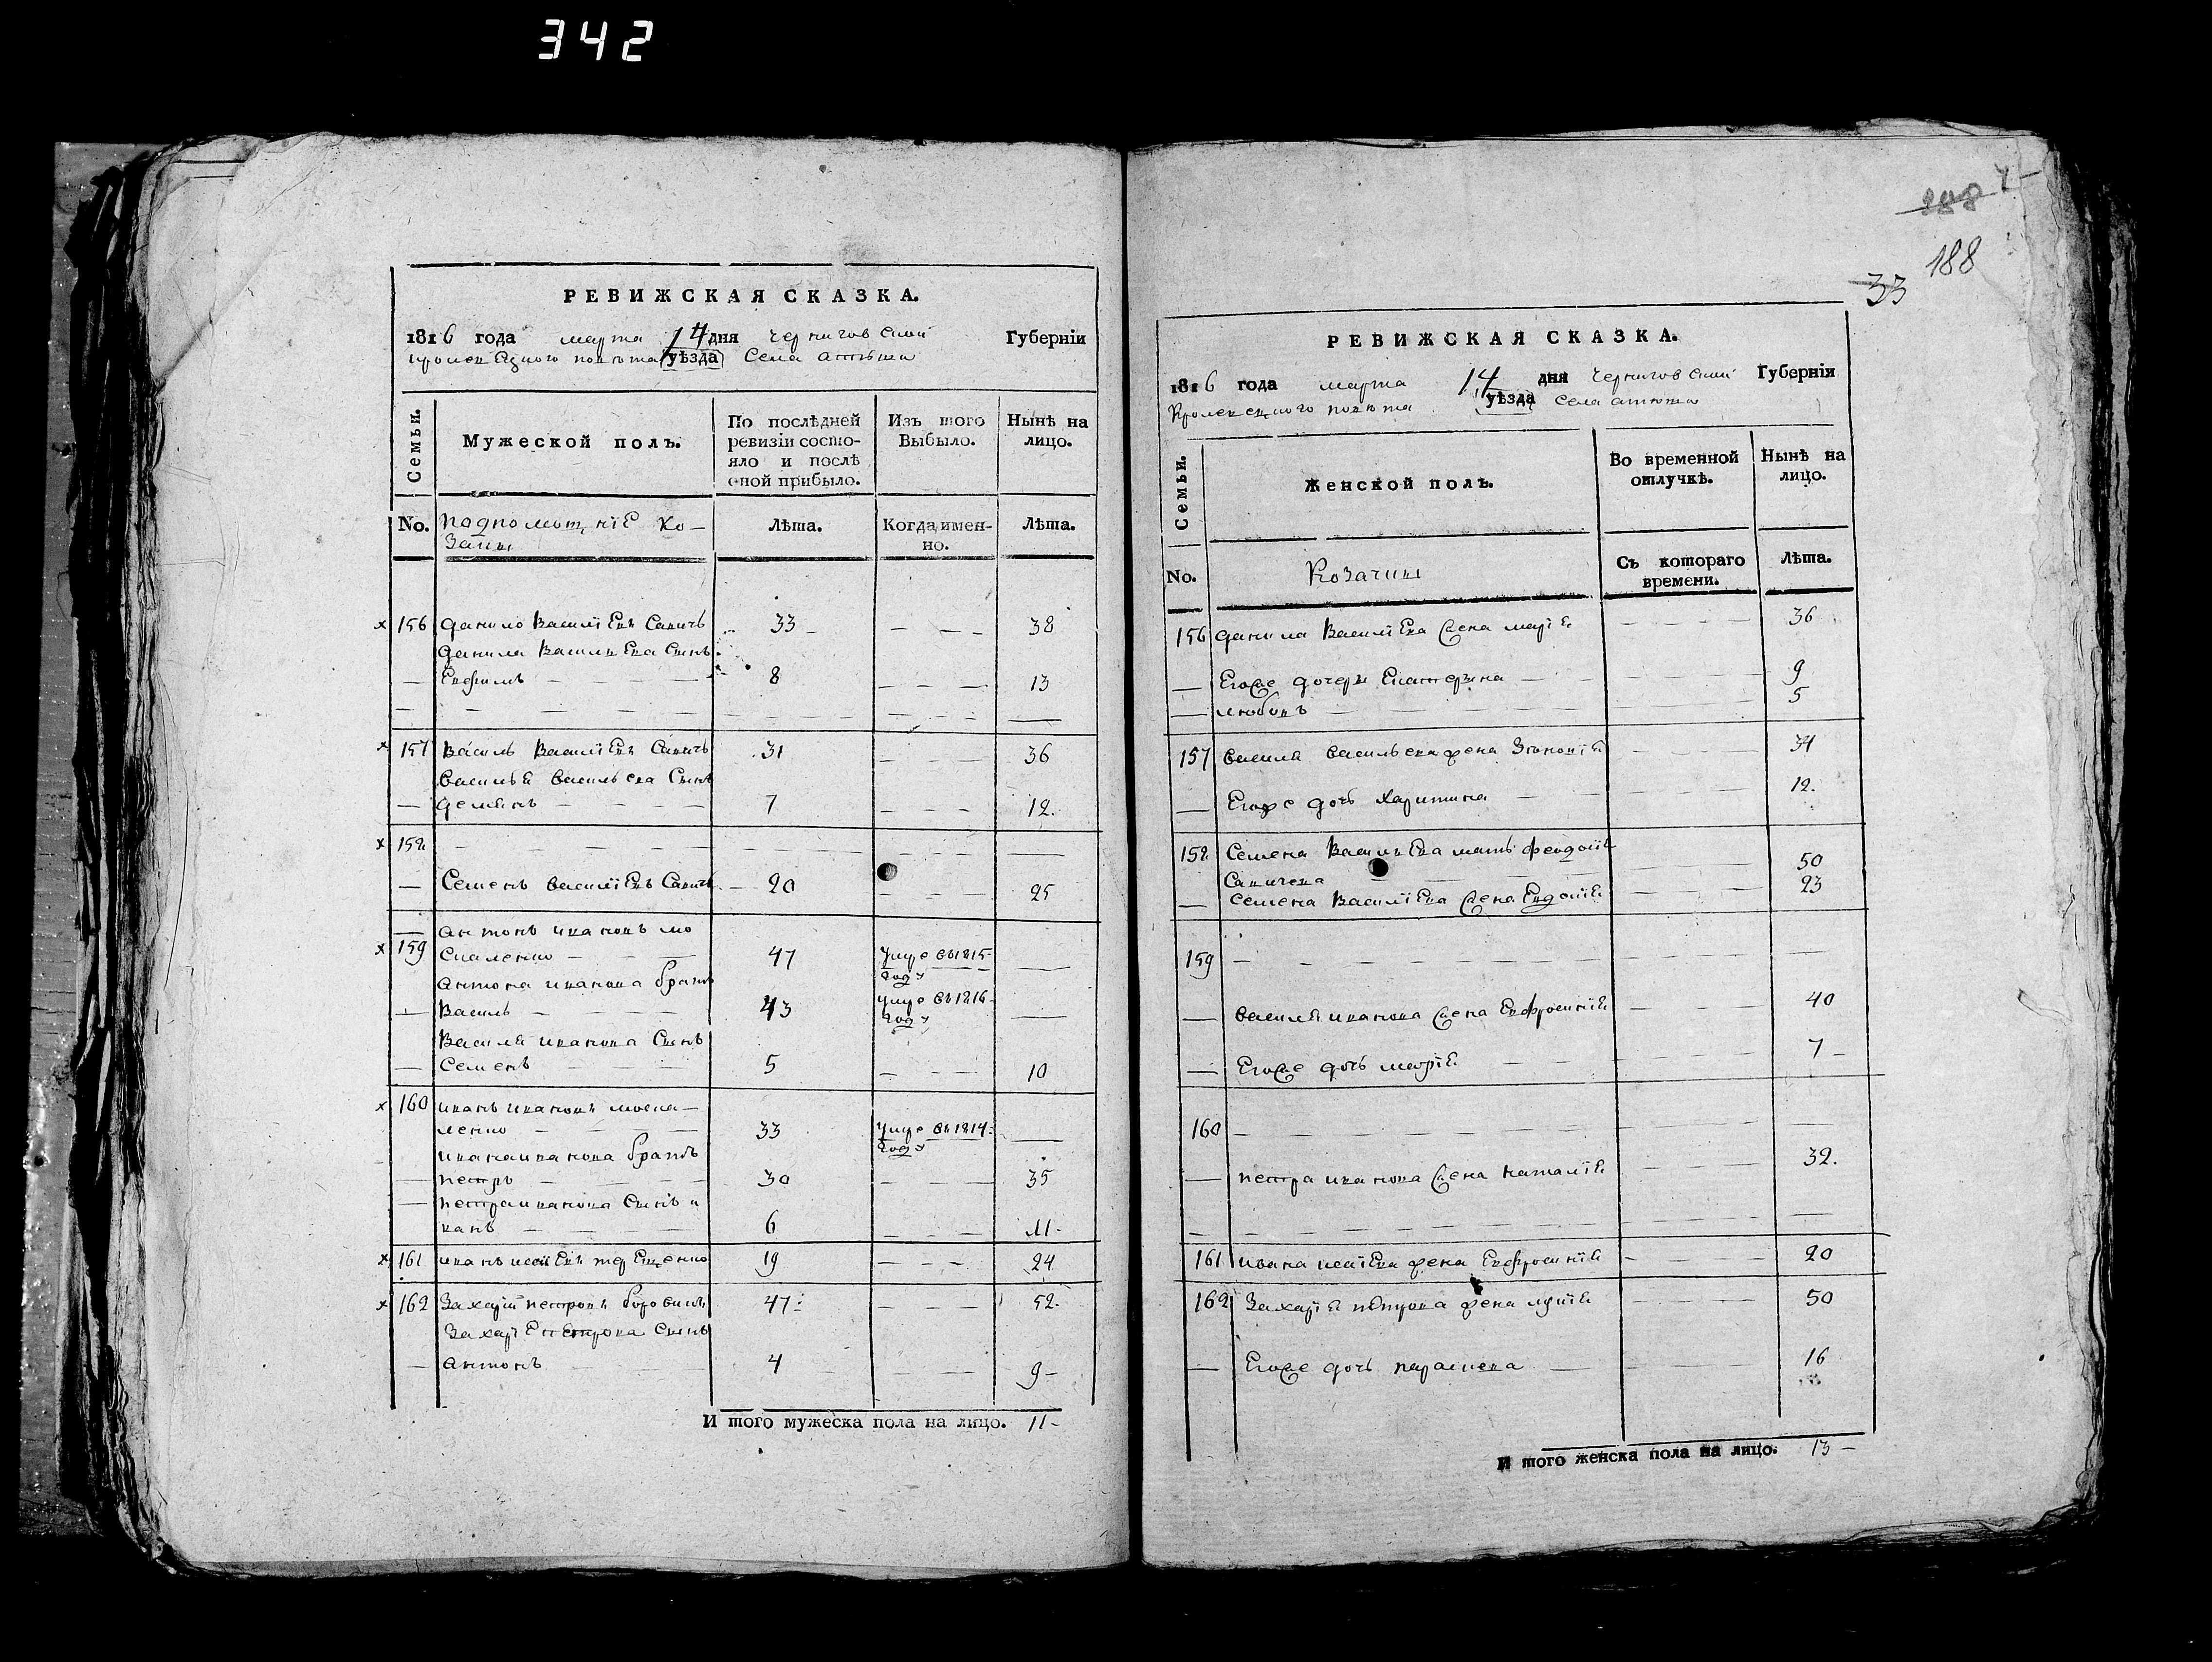 342
РЕВИЖСКАЯ СКАЗКА.
1816 года марта 14 дня Черниговской Губернїи
кролевецкого повѣта уѣзда Села атюши
Семьи.
Мужеской полъ.
По послѣдней ревизїи состо-
яло и послѣ
оной прибыло.
Изъ того
Выбыло.
Нынѣ на
лицо.
No. подпомощнїе ко-
заки
Лѣта.
Когда имен-
но.
Лѣта.
156 данило Василїевъ Савичъ 33 38
данила Васильева Сынъ
Ефимъ 8 13
157 Василь Василїевъ Савичъ 31 36
Василья Васильева Сынъ
демянъ 7 12.
158
Семенъ Василїевъ Савичъ 20 25
антонъ ивановъ мо
159 скаленко 47 умре въ 1815
году
антона иванова братъ
Василь 43 умре въ 1816
году
Василя иванова Сынъ
Семенъ 5 10
160 иванъ ивановъ моска-
ленко 33 умре въ 1814
году
ивана иванова братъ
петръ 30 35
петра иванова Сынъ и
ванъ 6 11
161 иванъ терещенко 19 24
162 Захарїй петровъ боровикъ 47 52.
Захарїе петрова Сынъ
антонъ 4 9
И того мужеска пола на лицо. 11
188
33
РЕВИЖСКАЯ СКАЗКА.
1816 года марта 14 дня Черниговской Губернїи
Кролевецкого повѣта уѣзда села атюши
Семьи.
Женской полъ.
Во временной
отлучкѣ.
Нынѣ на
лицо.
No. Козачки
Съ котораго
времени.
Лѣта.
156 данила Василїева жена марїя 36
Егоже дочери Екатерина 9
любовь 5
157 Василя васильева жена Зѣновїя 34
Егоже дочь Харитина 12.
158 Семена Васильева мать феодосїя
Савичева 50
семена Василїева жена Евдокїя 23
159
Василя иванова жена Ефросинїя 40
Егоже дочь марїя 7
160
петра иванова жена наталїя 32.
161 ивана жена Ефросинїя 20
162 Захарїя петрова жена 50
Егоже дочь параскева 16
И того женска пола на лицо. 13